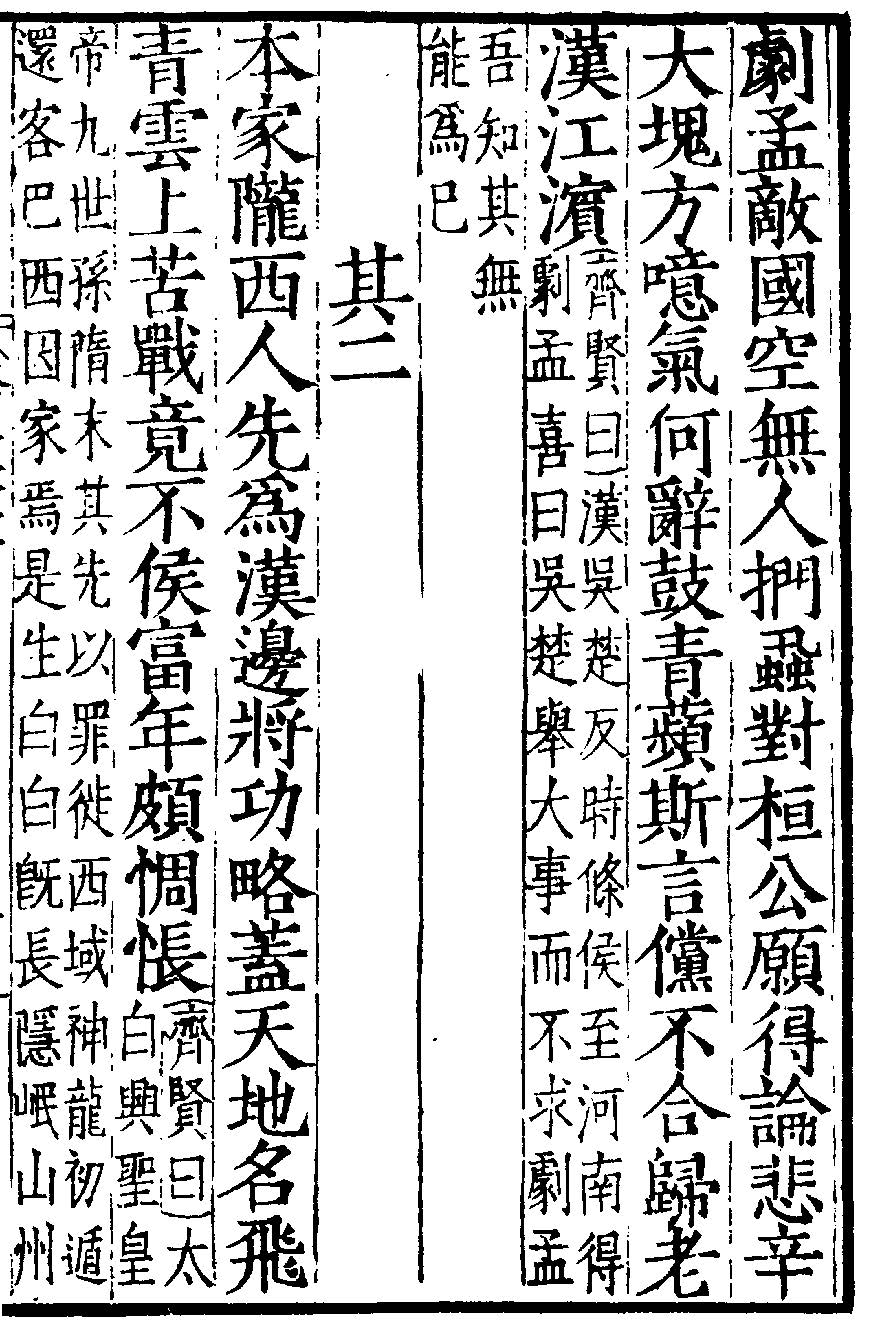 劇孟敵國空無人捫蝨對桓公願得論悲辛
大塊方噫氣何辭鼓青蘋斯言儻不合歸老
漢江濱
齊賢曰漢吳楚反時條侯至河南得
劇孟喜曰吳楚舉大事而不求劇孟
吾知其無
能爲已
其二
本家隴西人先爲漢邊將功略蓋天地名飛
青雲上苦戰竟不侯富年頗惆悵
齊賢曰太
白興聖皇
帝九世孫隋末其先以罪徙西域神龍初遁
還客巴西因家焉是生白白旣長隱岷山州